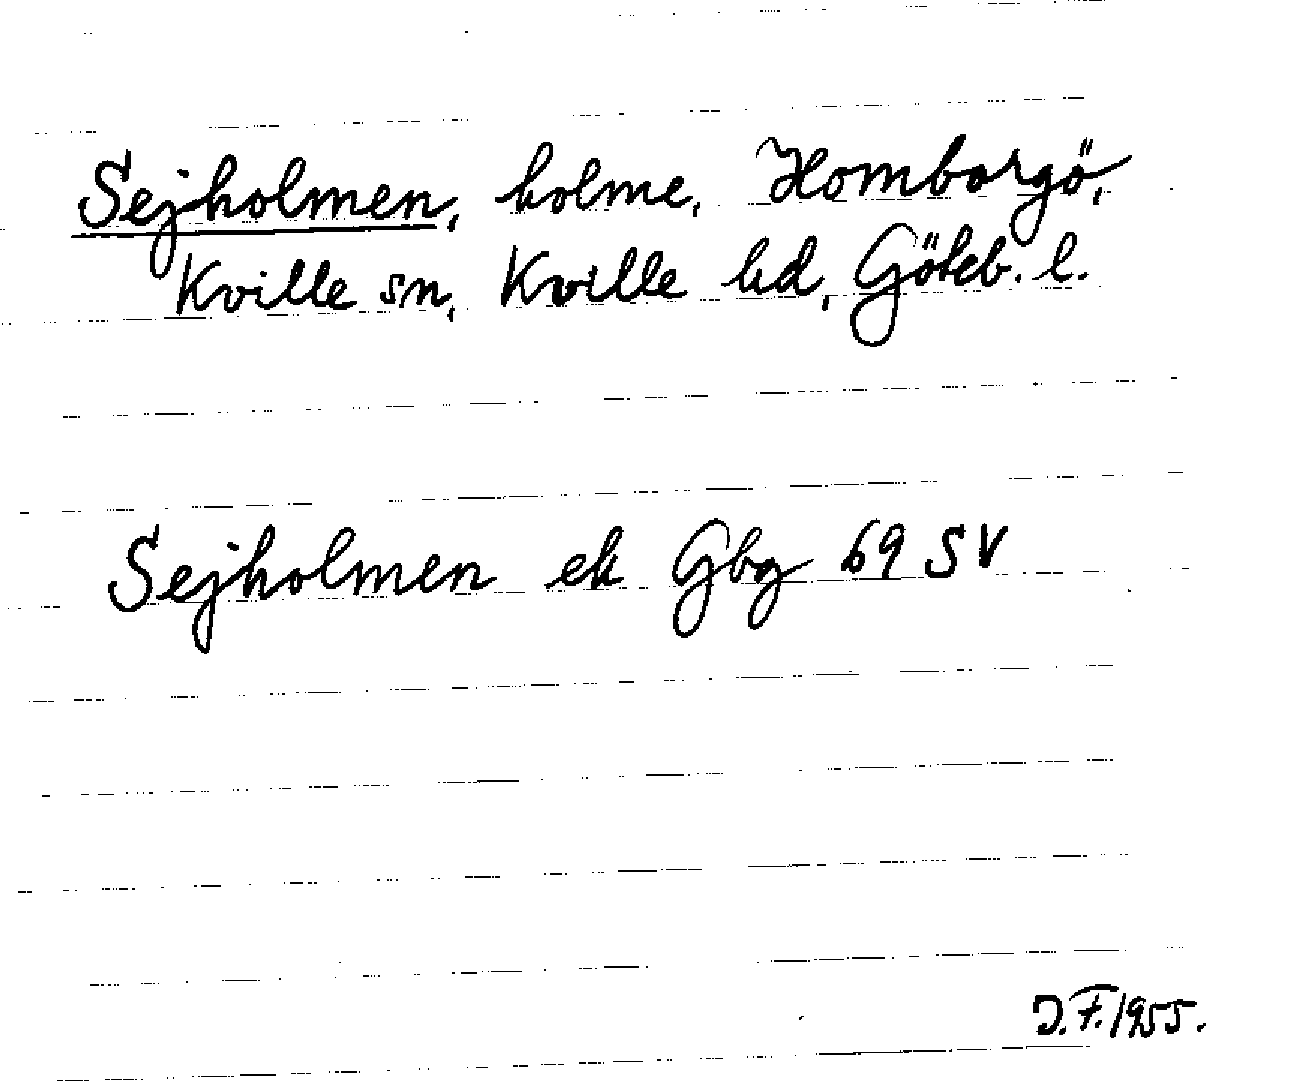 Sejholmen, holme, Homborgö,
Kville sn, Kville hd, Göteb. l.
Sejholmen ek Gbg 69 SV
J.F. 1955.